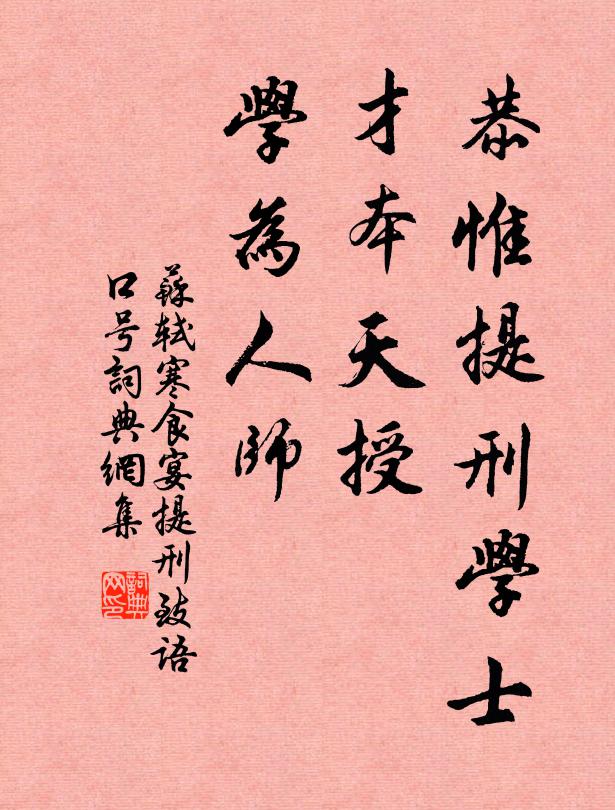 恭惟提刑學士
才本天授
學為人師
蘇軾寒食宴提刑致語
口号詞典網集
詞典
网印